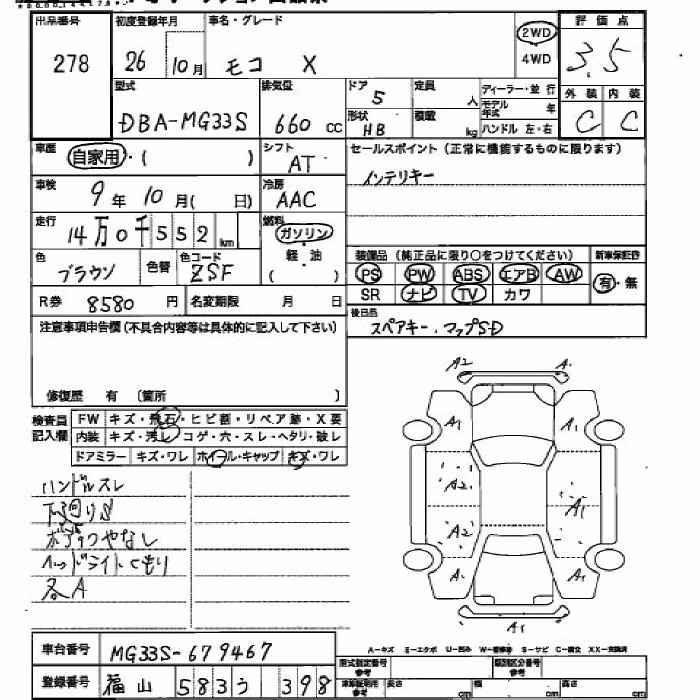 出品番号 初度登録年月 車名・グレード 2WD 評価点
278 26 10月 モコ X 4WD 3.5
型式 排気量 ドア 5 定員 人 ディーラー・並行 外装 内装
モデル年式 年
DBA-MG33S 660 cc 形状 HB 積載 kg ハンドル 左・右 C C
車歴 自家用・( ) シフト AT セールスポイント (正常に機能するものに限ります)
車検 9年 10月( 日) 冷房 AAC インテリキー
走行 14万0千552km 燃料 ガソリン
軽・油
( )
装備品 (純正品に限り○をつけてください) 新車保証書
色 ブラウン 色替 色コード ZSF PS PW ABS エアB AW 有・無
R券 8580円 名変期限 月 日 SR ナビ TV カワ
注意事項申告欄(不具合内容等は具体的に記入して下さい) 後日品
スペアキー.マップSD
修復歴 有 〔箇所 〕
検査員記入欄 FW キズ・飛石・ヒビ割・リペア跡・X要
内装 キズ・汚レ・コゲ・穴・スレ・ヘタリ・破レ
ドアミラー キズ・ワレ ホイール・キャップ キズ・ワレ
A2 A.
A1 A1
A2 A1
A2
A. A.
A1
ハンドルスレ
下廻りS
ボデーつやなし
ヘッドライトくもり
各A
車台番号 MG33S-679467
A-キズ E-エクボ U-凹み W-補修跡 S-サビ C-腐食 XX-交換済
登録番号 福山 583 う 398
型式指定番号 参考 類別区分番号 参考
参考 長さ cm 幅 cm 高さ cm